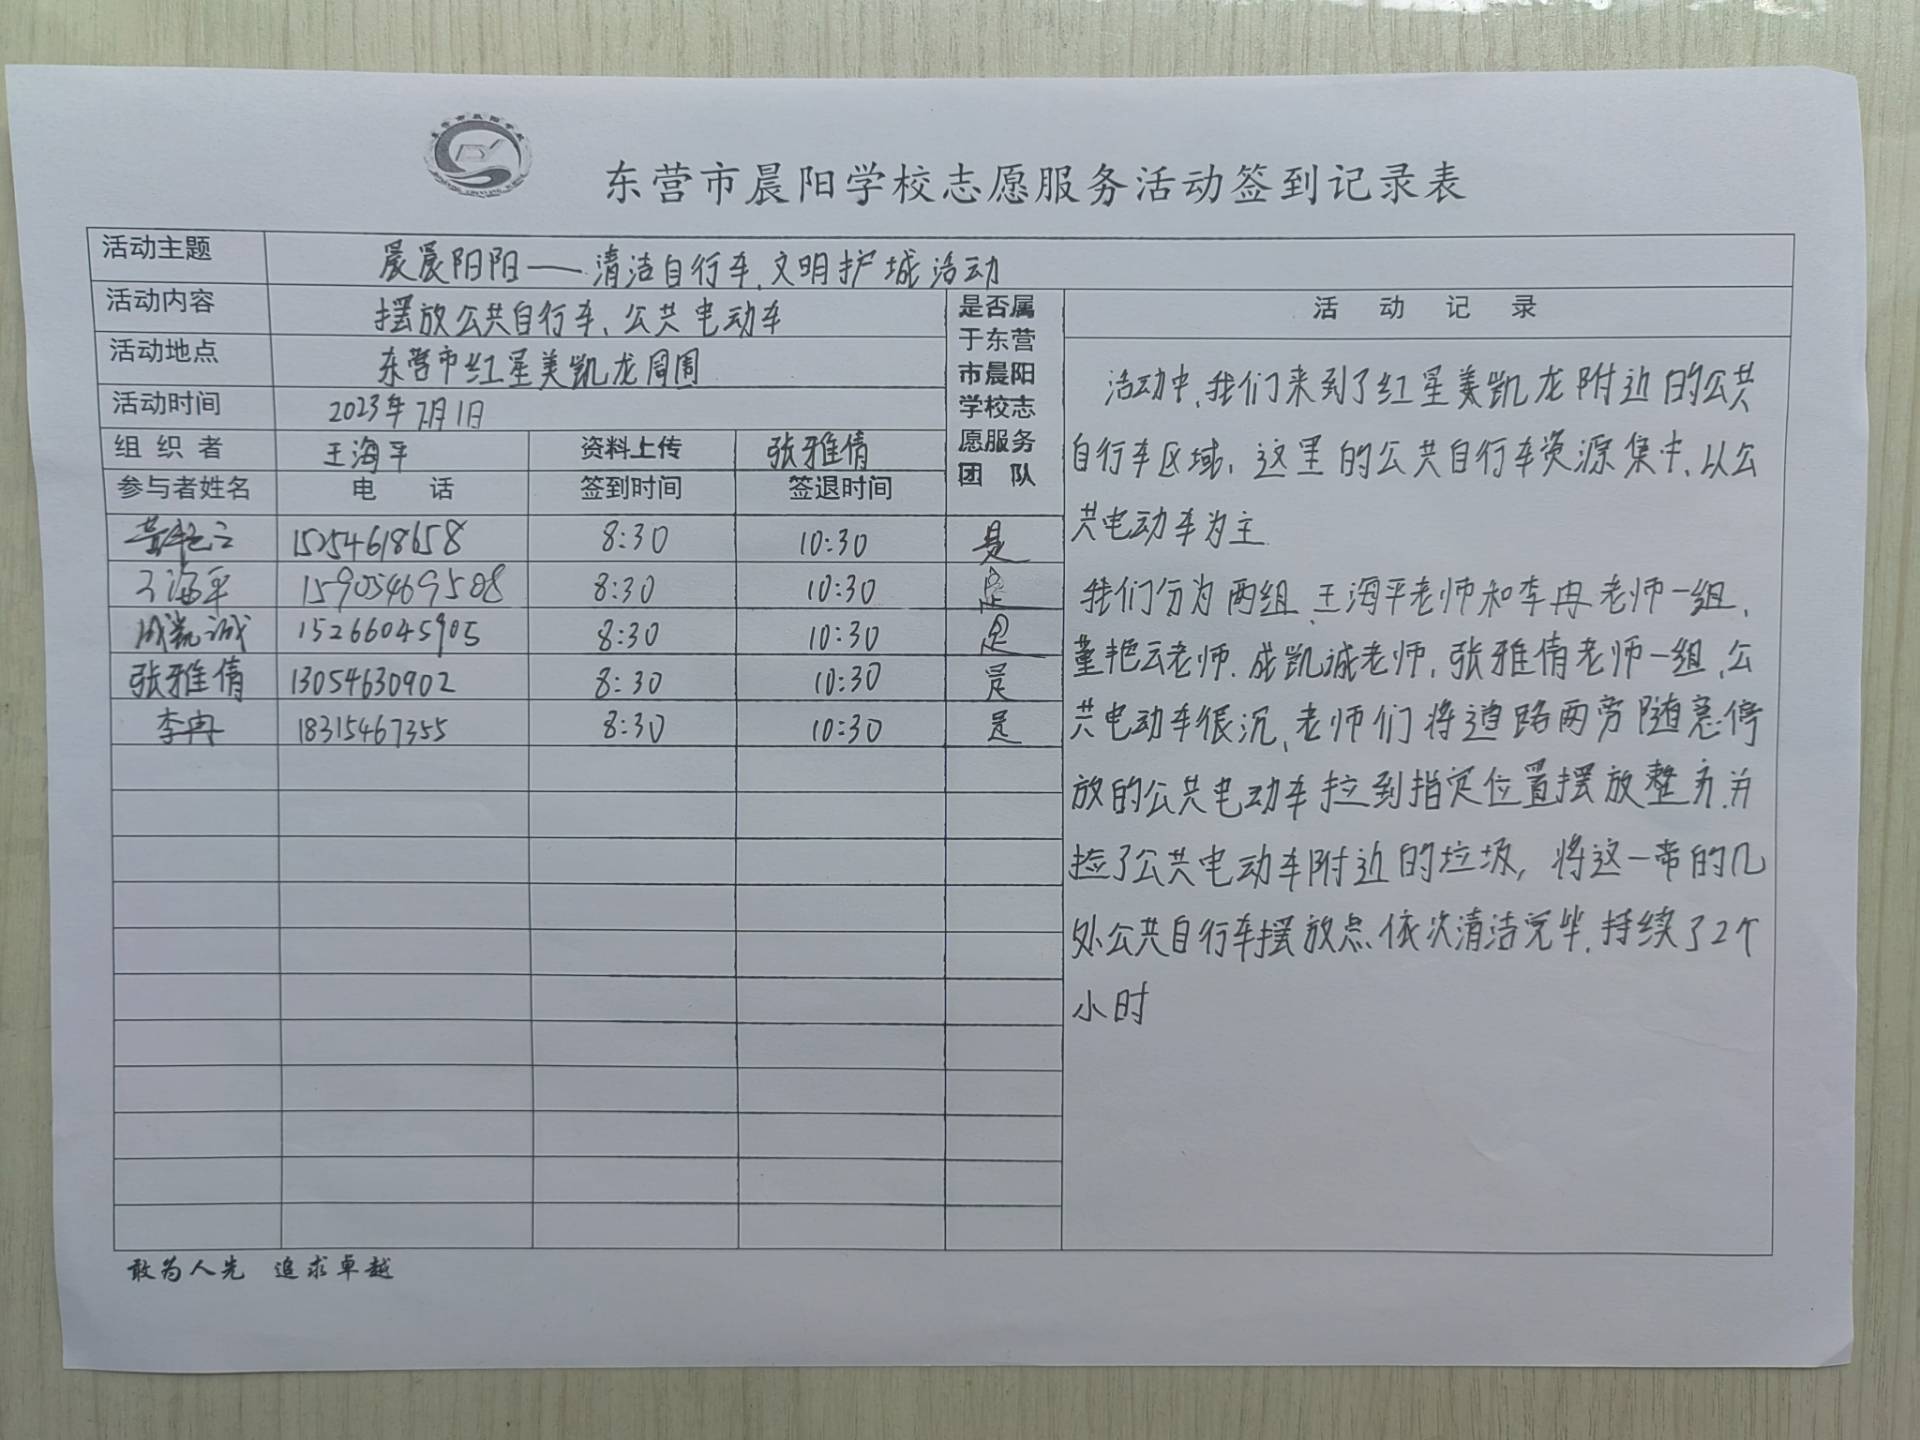 东营市晨阳学校志愿服务活动签到记录表
活动主题 晨晨阳阳——清洁自行车、文明护城活动
活动内容 摆放公共自行车、公共电动车
活动地点 东营市红星美凯龙周围
活动时间 2023年7月1日
组织者 王海平 资料上传 张雅倩
参与者姓名 电话 签到时间 签退时间
是否属
于东营
市晨阳
学校志
愿服务
团队
董艳云 15254618658 8:30 10:30 是
王海平 15905469508 8:30 10:30 是
成凯诚 15266045905 8:30 10:30 是
张雅倩 13054630902 8:30 10:30 是
李冉 18315467355 8:30 10:30 是
活动记录
活动中,我们来到了红星美凯龙附近的公共
自行车区域,这里的公共自行车资源集中,以公
共电动车为主
我们分为两组,王海平老师和李冉老师一组,
董艳云老师、成凯诚老师,张雅倩老师一组,公
共电动车很沉,老师们将道路两旁随意停
放的公共电动车拉到指定位置摆放整齐,并
捡了公共电动车附近的垃圾,将这一带的几
处公共自行车摆放点依次清洁完毕,持续了2个
小时
敢为人先 追求卓越